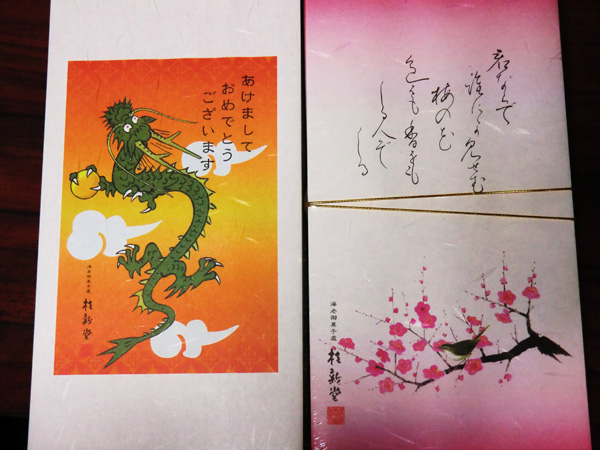 あけまして
おめでとう
ございます
海老御菓子處
桂新堂
君ならで
誰にか見せむ
梅の花
色をも香をも
しる人ぞ
しる
海老御菓子處
桂新堂